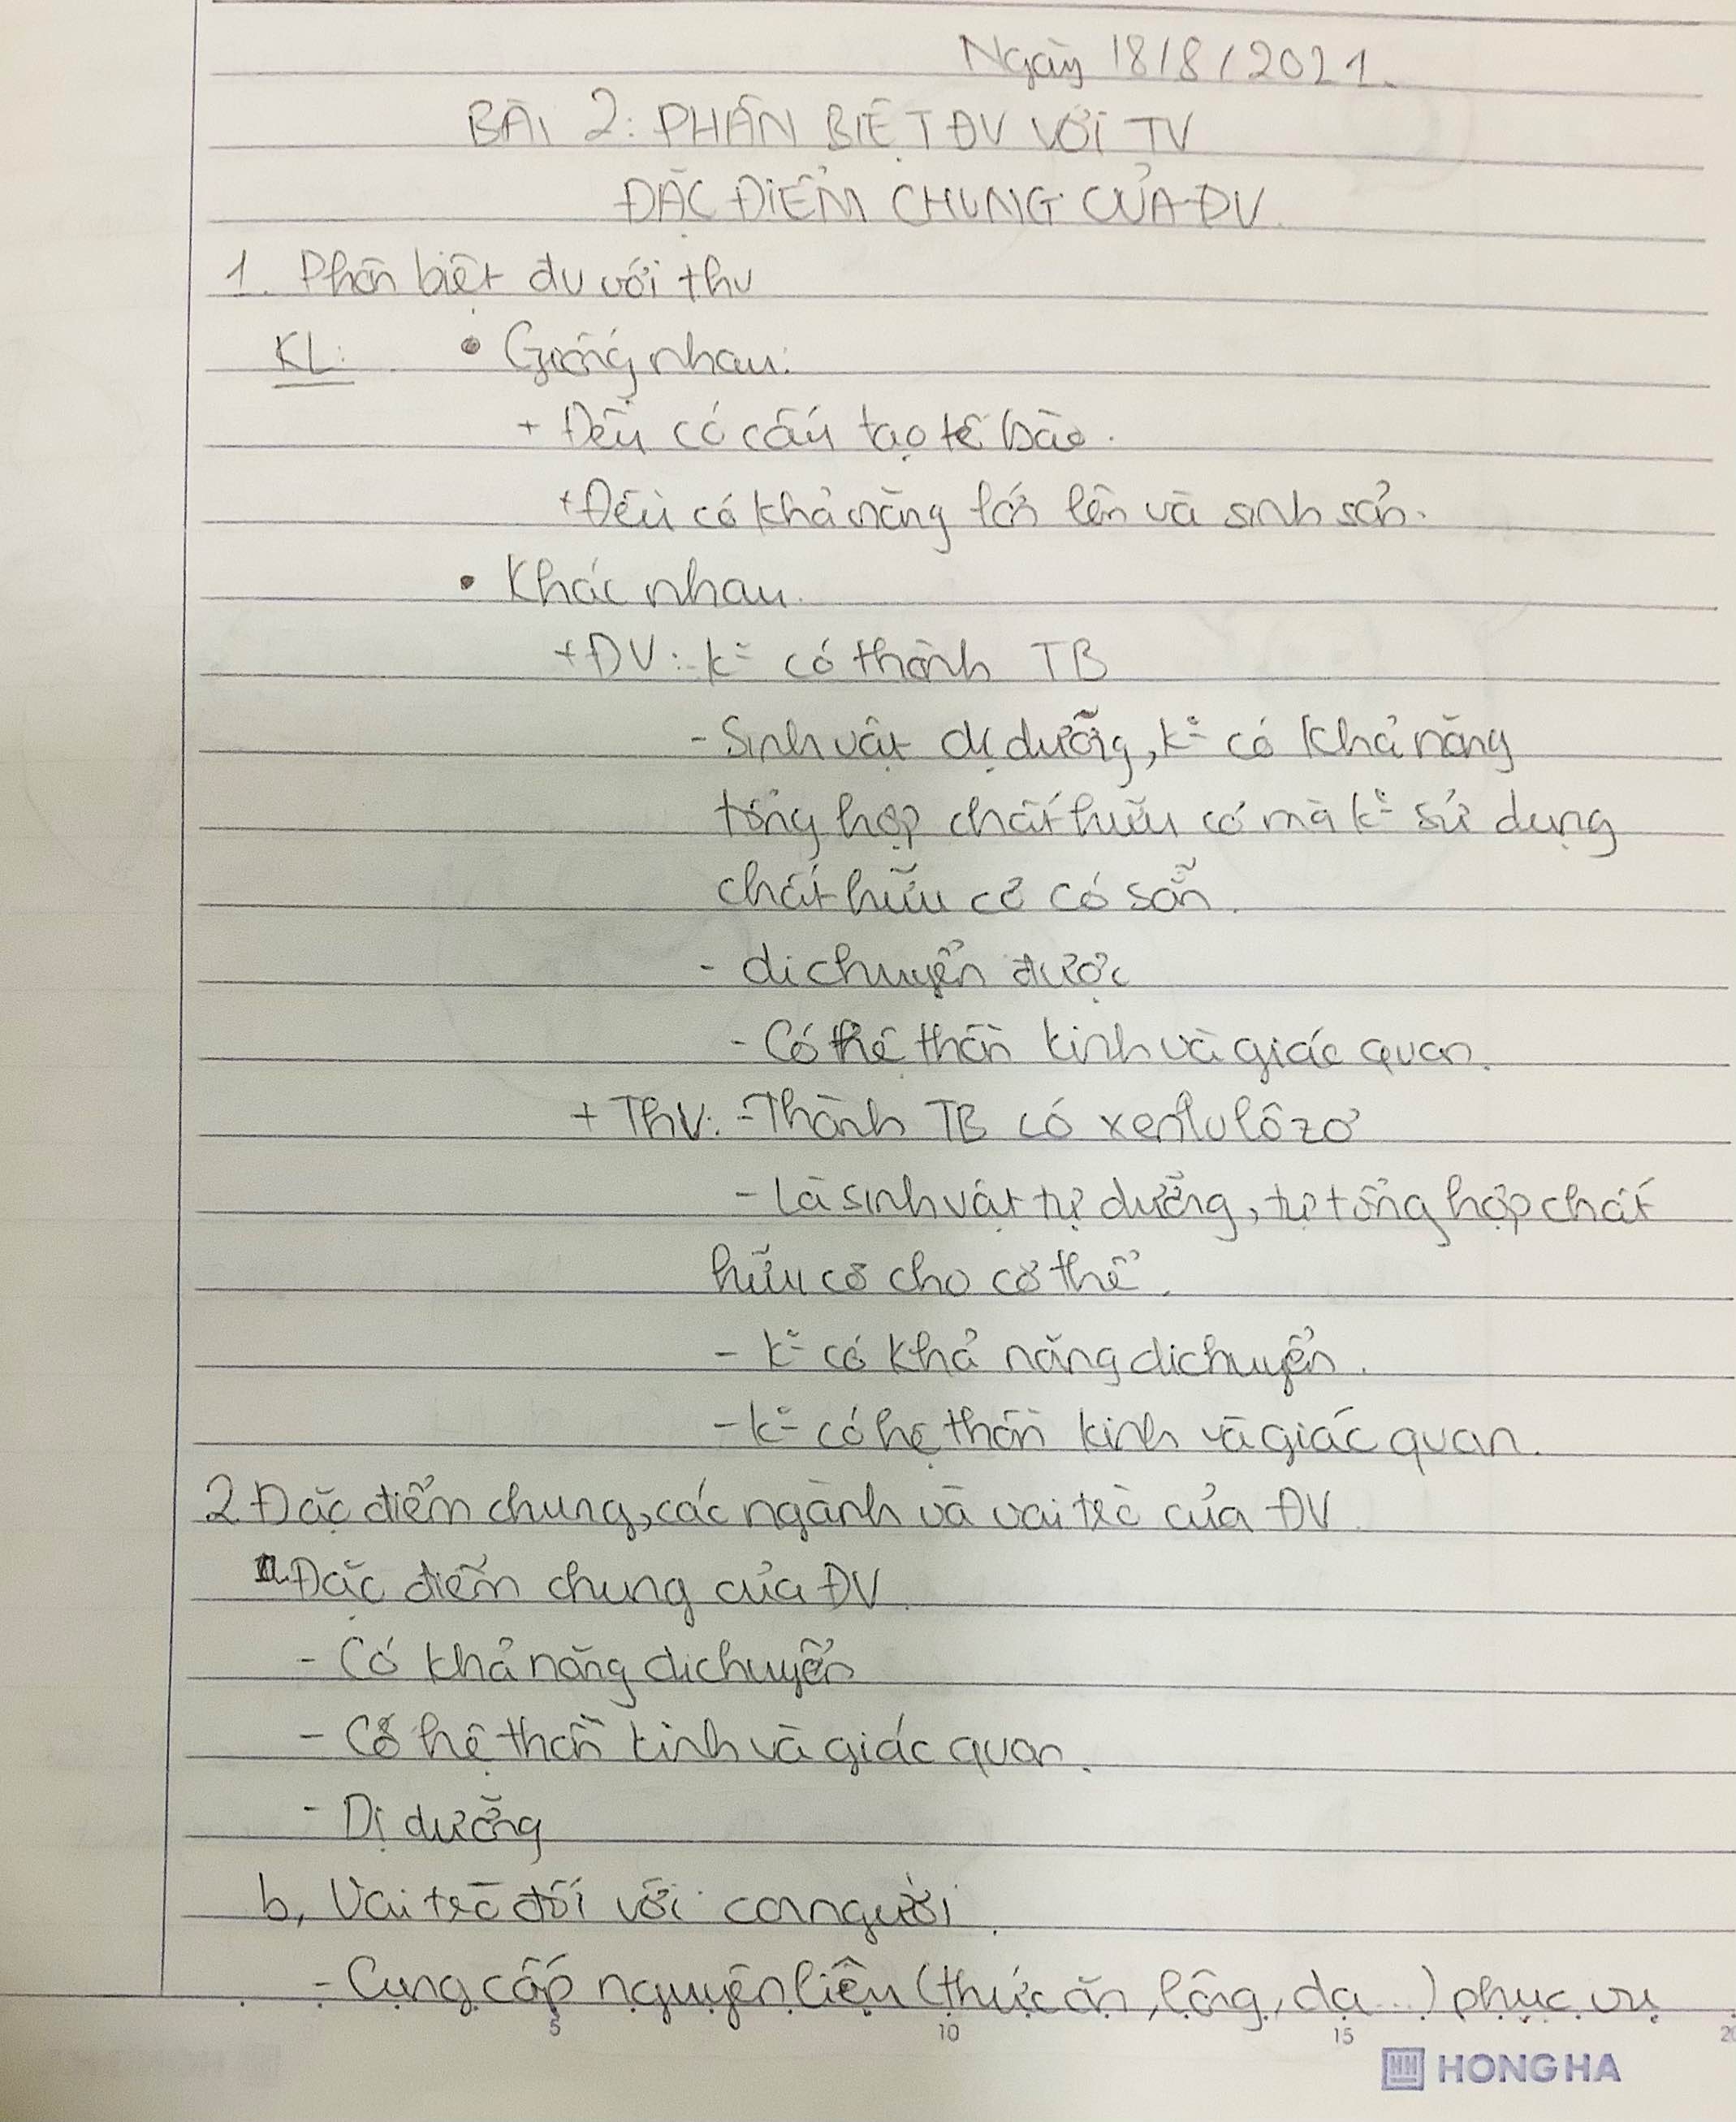 Ngày 18/8/2021.
BÀI 2: PHÂN BIỆT ĐV VỚI TV
ĐẶC ĐIỂM CHUNG CỦA ĐV.
1. Phân biệt đv với thv
KL: • Giống nhau:
+ Đều có cấu tạo tế bào.
+ Đều có khả năng lớn lên và sinh sản.
• Khác nhau.
+ ĐV: - k° có thành TB
- Sinh vật dị dưỡng, k° có khả năng
tổng hợp chất hữu cơ mà k° sử dụng
chất hữu cơ có sẵn.
- di chuyển được
- Có hệ thần kinh và giác quan.
+ ThV: - Thành TB có xenlulôzơ
- Là sinh vật tự dưỡng, tự tổng hợp chất
hữu cơ cho cơ thể.
- k° có khả năng di chuyển.
- k° có hệ thần kinh và giác quan.
2. Đặc điểm chung, các ngành và vai trò của ĐV.
a. Đặc điểm chung của ĐV.
- Có khả năng di chuyển
- Có hệ thần kinh và giác quan.
- Dị dưỡng
b, Vai trò đối với con người.
- Cung cấp nguyên liệu (thức ăn, lông, da...) phục vụ
5 10 15 20
HONG HA